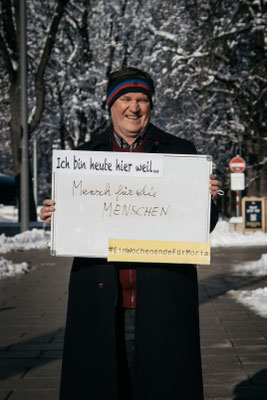 Ich bin heute hier weil...
Mensch für die
MENSCHEN
#EinWochenendeFürMoria